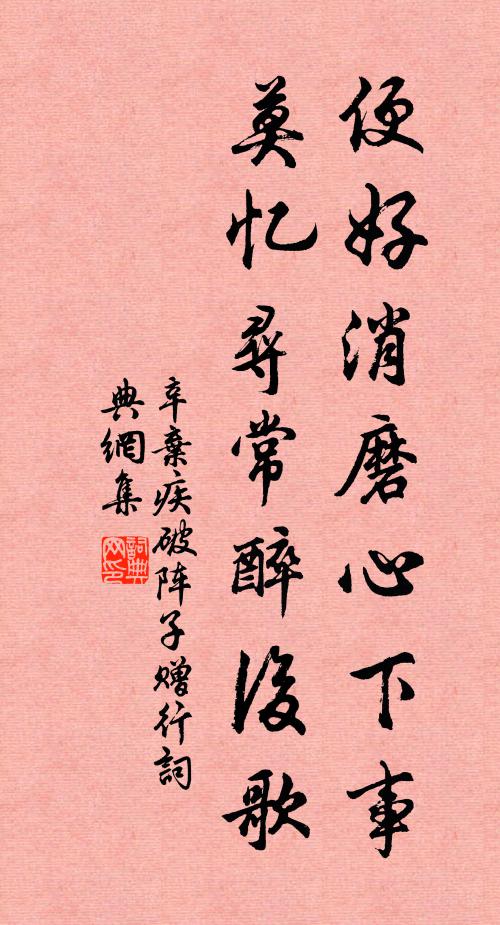 便好消磨心下事
莫忆尋常醉後歌
辛棄疾破阵子赠行詞
典網集
詞典网印